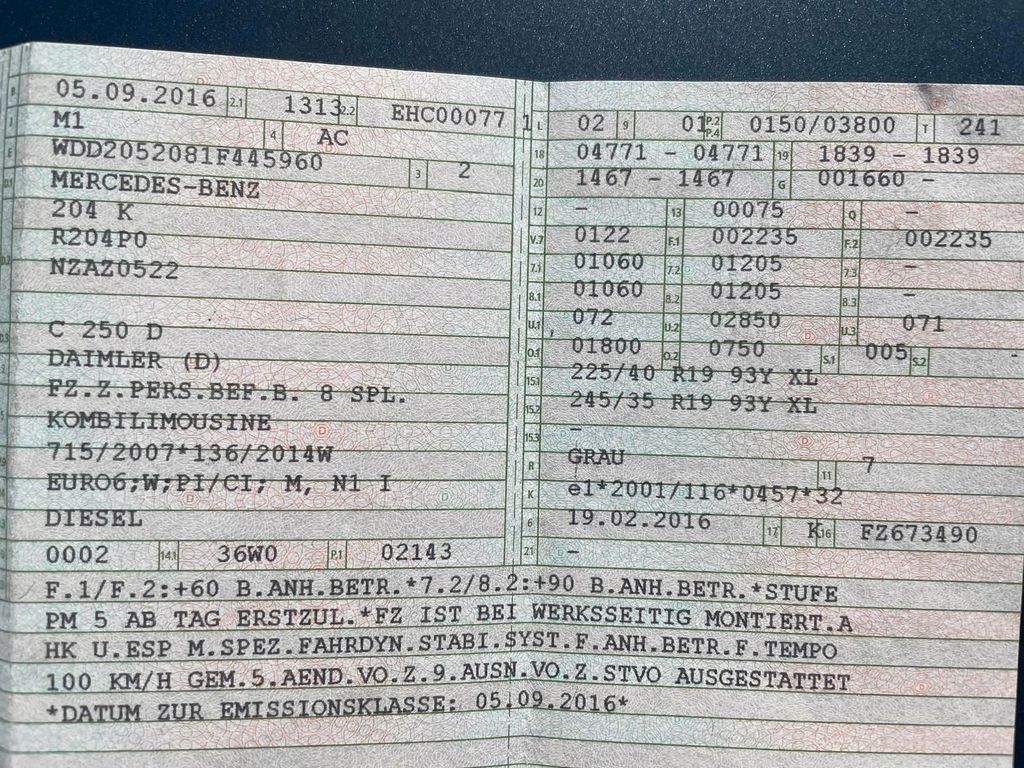 05.09.2016 2.1 1313 2.2 EHC00077 1
M1 4 AC
WDD2052081F445960 3 2
MERCEDES-BENZ
204 K
R204P0
NZAZ0522
C 250 D
DAIMLER (D)
FZ.Z.PERS.BEF.B. 8 SPL.
KOMBILIMOUSINE
715/2007*136/2014W
EURO6;W;PI/CI; M, N1 I
DIESEL
0002 14.1 36W0 P.1 02143
L 02 9 01 P.2 P.4 0150/03800 T 241
18 04771 - 04771 19 1839 - 1839
20 1467 - 1467 G 001660 -
12 - 13 00075 Q -
V.7 0122 F.1 002235 F.2 002235
7.1 01060 7.2 01205 7.3 -
8.1 01060 8.2 01205 8.3 -
U.1 072 U.2 02850 U.3 071
O.1 01800 O.2 0750 S.1 005 S.2 -
15.1 225/40 R19 93Y XL
15.2 245/35 R19 93Y XL
15.3 -
R GRAU 11 7
K e1*2001/116*0457*32
6 19.02.2016 17 K 16 FZ673490
21 -
F.1/F.2:+60 B.ANH.BETR.*7.2/8.2:+90 B.ANH.BETR.*STUFE
PM 5 AB TAG ERSTZUL.*FZ IST BEI WERKSSEITIG MONTIERT.A
HK U.ESP M.SPEZ.FAHRDYN.STABI.SYST.F.ANH.BETR.F.TEMPO
100 KM/H GEM.5.AEND.VO.Z.9.AUSN.VO.Z.STVO AUSGESTATTET
*DATUM ZUR EMISSIONSKLASSE: 05.09.2016*